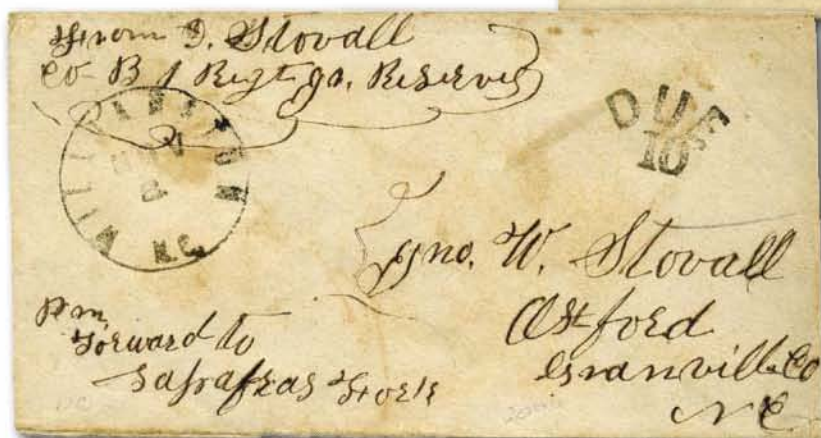 From Stovall
Co B 1 Regt ga. Reserves
WILLIAMSTON
N.C.
DUE
10
Jno. W. Stovall
Oxford
Granville Co
NC
P m,
Forward to
Safrafras Fork